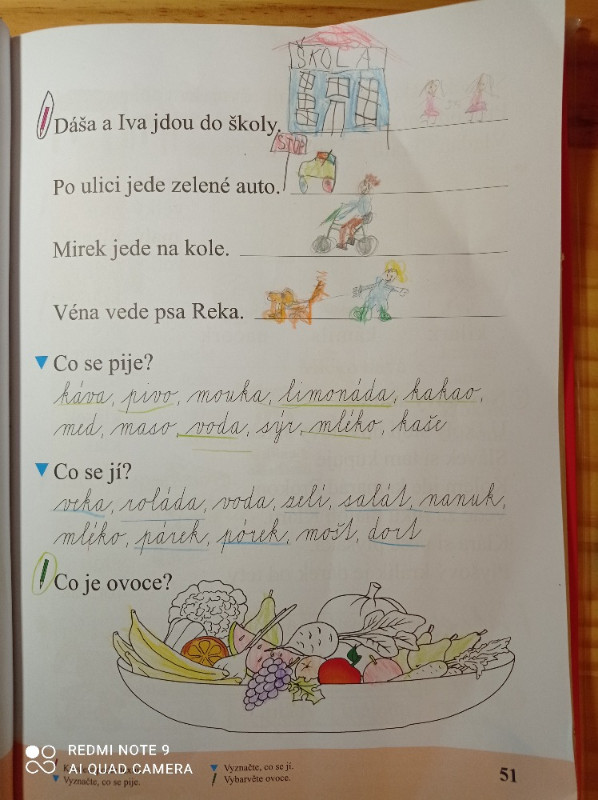 ŠKOLA
Dáša a Iva jdou do školy.
STOP
Po ulici jede zelené auto.
Mirek jede na kole.
Véna vede psa Reka.
Co se pije?
káva, pivo, mouka, limonáda, kakao,
med, maso, voda, sýr, mléko, kaše
Co se jí?
veka, roláda, voda, zelí, salát, nanuk,
mléko, párek, pórek, mošt, dort
Co je ovoce?
Vyznačte, co se pije.
Vyznačte, co se jí.
Vybarvěte ovoce.
51
REDMI NOTE 9
AI QUAD CAMERA